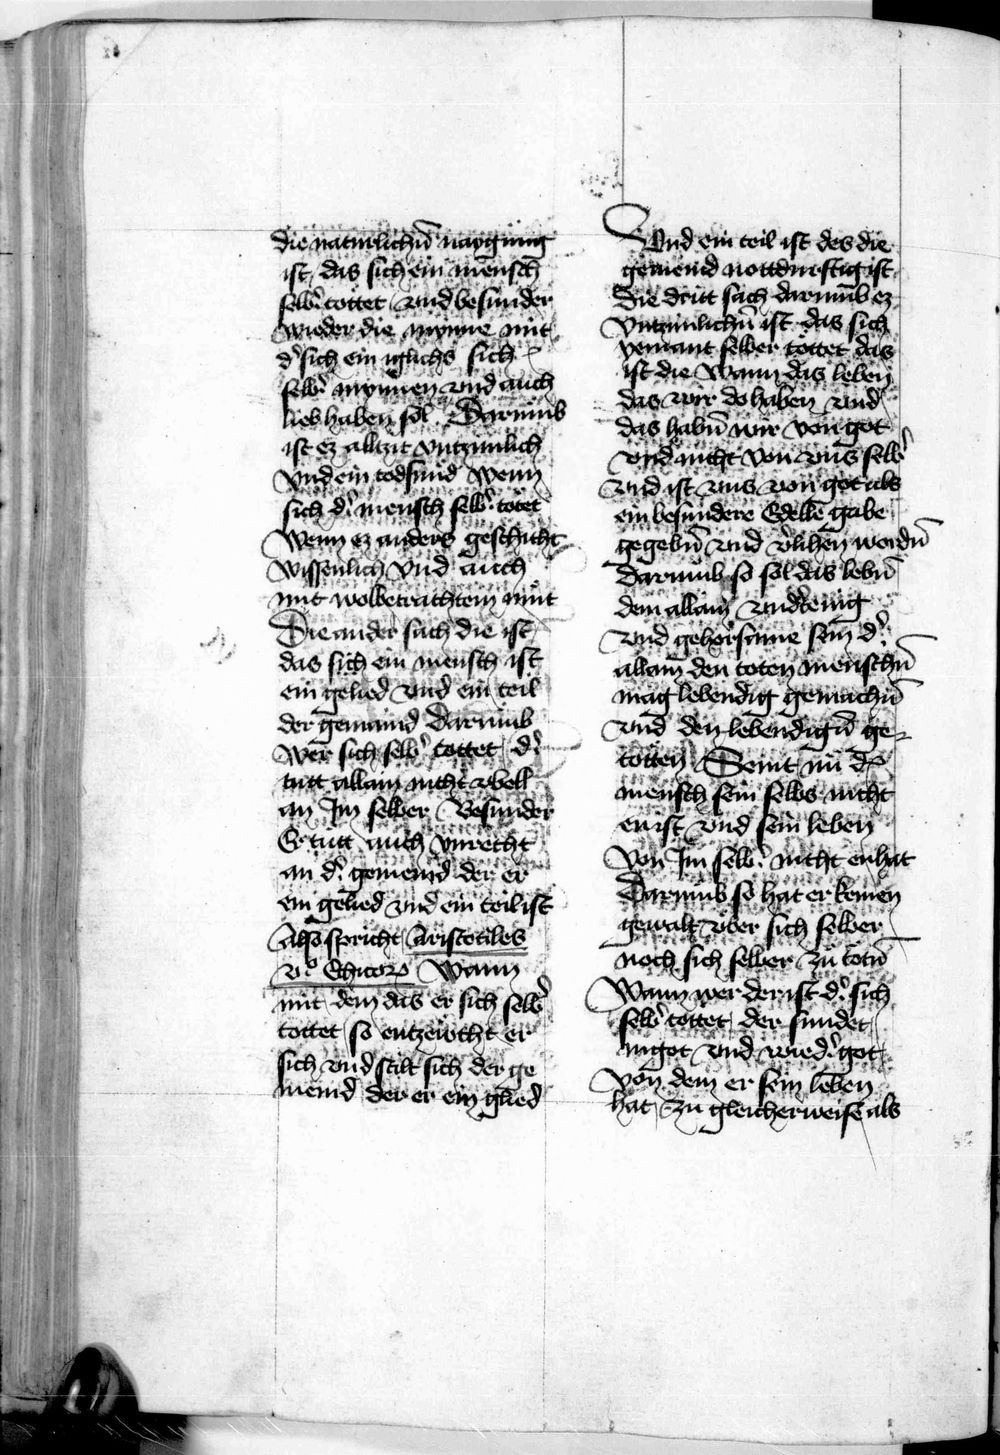 die naturlichen̄ naygung
ist das sich ein mensch
selb̾ tottet vnd besunder
wieder die mynne mit
d̾ sich ein iglichs sich
selb̾ mynnen vnd auch
lieb haben sol Darumb
ist ez allzit vntzimlich
vnd ein todsund wenn
sich d̾ mensch selb̾ totet
Wenn ez anders geschicht
wissenlich vnd auch
mit wolbetrachtem mut
Die ander sach die ist
das sich ein mensch ist
ein gelied vnd ein teil
der gemaind Darumb
wer sich selb̾ tottet d̾
tutt allain nicht vbell
an Im selber Besunder
Er tutt auch vnrecht
an d̾ gemeind der er
ein gelied vnd ein teil ist
Also spricht Aristotiles
vͦ Ethicorꝫ Wann
mit dem das er sich selb̾
tottet so entzeucht er
sich vnd stilt sich der ge
meind der er ein glied
Vnd ein teil ist des die
gemeind nottdurftig ist
Die dritt sach darumb ez
vntzimlichn̄ ist das sich
yemant selber tottet das
ist die Wann das leben
das wir do haben vnd
das habn̄ wir von got
vnd nicht von vns selb̾
vnd ist vns von got als
ein besundere Edelle gabe
gegebn̄ vnd v̾lihen wordn̄
Darumb so sol das lebn̄
dem allain vndtenig
vnd gehorsame sein d̾
allain den toten menschn̄
mag lebendig gemachn̄
vnd den lebendign̄ ge-
totten Seint nu d̾
mensch sein selbs nicht
en ist vnd sein leben
von Im selb̾ nicht enhat
Darumb so hat er keinen
gewalt vber sich selber
noch sich selber zu totn̄
Wann wer der ist d̾ sich
selb̾ tottet der sundet
in got vnd wied̾ got
von dem er sein leben
hat Zu gleicherweise als